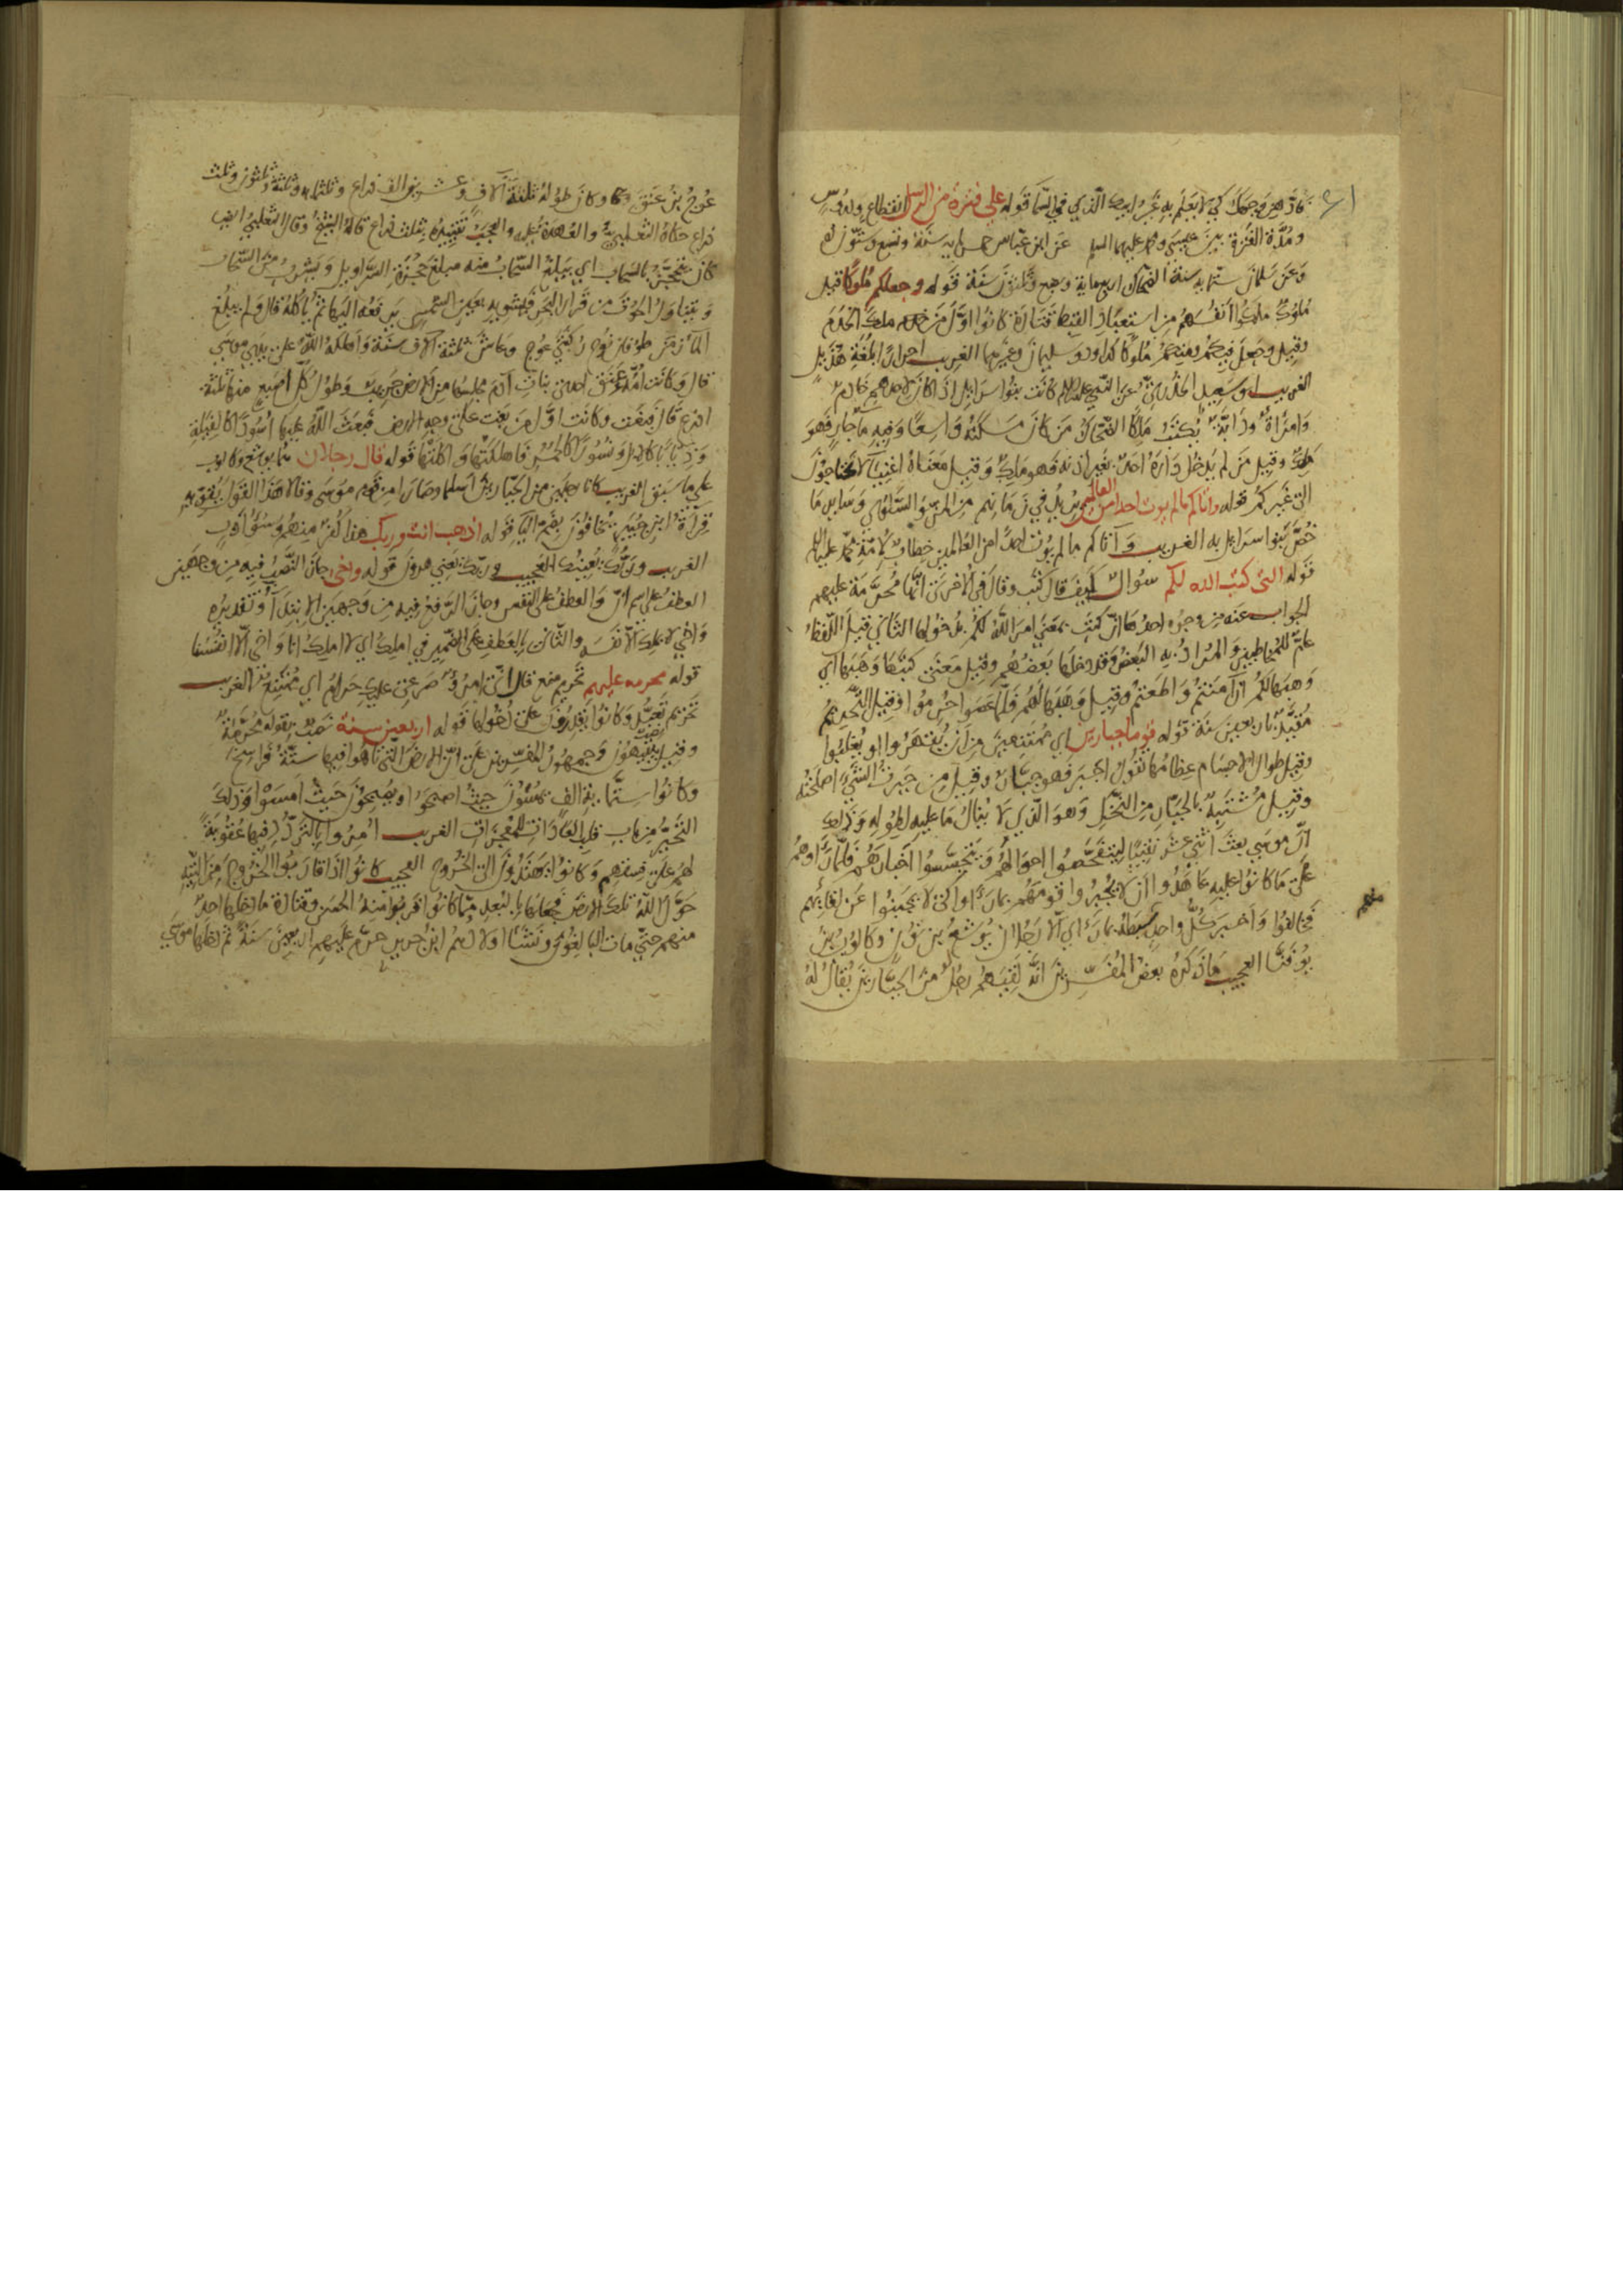 فادهن وجهك كي لا يعلم به غير ابيك الذي في السما قوله على فترة من الرسل انقطاع ودروس
ومدة الفترة بين عيسى ومحمد عليهما السلم عن ابن عباس خمس ماية سنة وتسع وستون سنة
وعن سلمان ستماية سنة الضحاك اربع ماية وبضع وثلثون سنة قوله وجعلكم ملوكا قيل
ملوك ملكوا انفسهم من استعباد القبط قتادة كانوا اول من ملك الخدم
وقيل وجعل فيكم ومنكم ملوكا كداود وسليمان وغيرهما الغريب احرارا بلغة هذيل
الغريب ابو سعيد الخدري عن النبي عليه السلام كانت بنوا اسرايل اذا كان لاحدهم خادم
وامرأة ودابة يكتب ملكا الضحاك من كان مسكنه واسعا وفيه ما جار فهو
ملك وقيل من لم يدخل داره احد بغير اذنه فهو ملك وقيل معناه اغنيا لا تحتاجون
الى غيركم قوله واتاكم ما لم يوت احدا من العالمين يريد في زمانهم من المن والسلوى وساير ما
خص بنوا اسرايل به الغريب وآتاكم ما لم يوت احدا من العالمين خطاب لامة محمد عليه السلم
قوله التي كتب الله لكم سؤال كيف قال كتب وقال في الاخرى انها محرمة عليهم
الجواب عنه من وجوه احدها ان كتب بمعنى امر الله لكم بدخولها الثاني قيل اللفظ
عام للمخاطبين والمراد به البعض وقد دخلها بعضهم وقيل معنى كتبها وهبها اي
وهبها لكم ان آمنتم واطعتم وقيل وهبها لهم فلما عصوا حرموا وقيل التحريم
مقيد باربعين سنة قوله قوما جبارين اي ممتنعين من ان يقهروا او يغلبوا
وقيل طوال الاجسام عظامها تقول اجبر فهو جبار وقيل من جبرت الشيء اصلحته
وقيل مشتبه بالجبار من النخل وهو الذي لا ينال ما عليه لطوله وذلك
ان موسى بعث اثني عشر نقيبا ليتفحصوا احوالهم ويتجسسوا اخبارهم فلما راوهم
على ما كانوا عليه عاهدوا ان لا يخبروا قومهم بما راوا لئلا يجبنوا عن لقائهم
فخالفوا واخبر كل واحد سبطه بما رأى الا رجلان يوشع بن نون وكالوب بن
يوفنا العجيب ما ذكره بعض المفسرين انه لقيهم رجل من الجبارين يقال له
منهم
عوج بن عنق وكان طوله ثلثة آلاف وعشرين الف ذراع وثلثمايه وثلثة وثلثون وثلث
ذراع حكاه الثعلبي والعهدة عليه والعجب تقييده بثلث ذراع قاله الشيخ وقال الثعلبي ايضا
كان يحتجز بالسحاب اي يبلغ السحاب منه مبلغ حجزة السراويل ويشرب من السحاب
ويتناول الحوت من قرار البحر فيشويه بعين الشمس يرفعه اليها ثم يأكله قال ولم يبلغ
الماء زمن طوفان نوح ركبتي عوج وعاش ثلثة آلاف سنة واهلكه الله على يدي موسى
قال وكانت امه عنق احدى بنات آدم مجلسها من الارض جريب وطول كل اصبع منها ثلثة
اذرع قال فبغت وكانت اول من بغت على وجه الارض فبعث الله عليها اسودا كالفيلة
وذيابا كالابل ونسورا كالحمر فاهلكتها واكلتها قوله قال رجلان هما يوشع وكالوب
على ما سبق الغريب كانا رجلين من الجبارين اسلما وصارا من قوم موسى وقالا هذا القول يقويه
قرآة ابن جبير يخافون بضم اليا قوله اذهب انت وربك هذا كفر منهم وسوء ادب
الغريب وربك يعينك العجيب وربك يعني هرون قوله واخي جاز النصب فيه من وجهين
العطف على اسم ان والعطف على النفس وجاز الرفع فيه من وجهين الابتداء وتقديره
واخي لا يملك الا نفسه والثاني بالعطف على الضمير في املك اي لا املك انا واخي الا انفسنا
قوله محرمه عليهم تحريم منع قال اني امرؤ صرعي عليك حرام اي ممتنع الغريب
تحريم تعبد وكانوا يقدرون على دخولها قوله اربعين سنة نصب بقوله محرمة
وقيل يتيهون وجمهور المفسرين على ان الارض التي تاهوا فيها ستة فراسخ
وكانوا ستماية الف يمسون حيث اصبحوا ويصبحون حيث امسوا وذلك
التحير من باب قلب العادات للمعجزات الغريب امروا بالتردد فيها عقوبة
لهم على فسقهم وكانوا يهتدون الى الخروج العجيب كانوا اذا قاربوا الخروج من التيه
حول الله تلك الارض فجعلها بالبعد مما كانوا قربوا منه الحسن وقتادة ما دخلها احد
منهم حتى مات البالغون ونشأ اولادهم ابن جرير حرم عليهم اربعين سنة ثم دخلها موسى